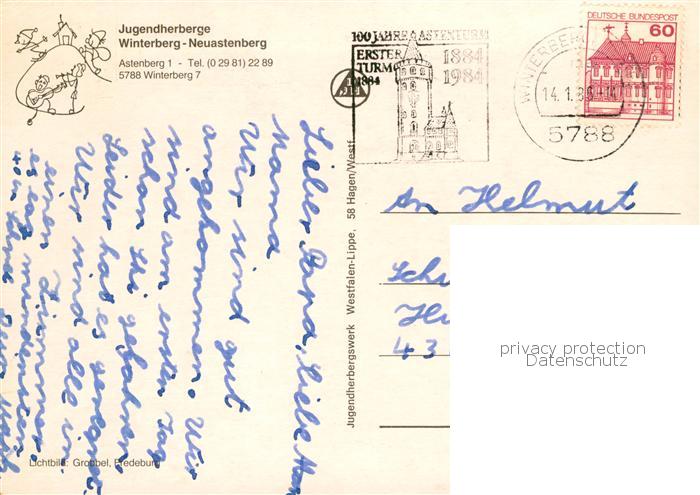 Jugendherberge
Winterberg-Neuastenberg
Astenberg 1 - Tel. (0 29 81) 22 89
5788 Winterberg 7
100 JAHRE ASTENTURM
ERSTER
TURM
1884
1884
1984
DEUTSCHE BUNDESPOST
60
WINTERBERG
14.1.86
5788
Jugendherbergswerk Westfalen-Lippe, 58 Hagen/Westf.
An Helmut
Sch
H
43
privacy protection
Datenschutz
Lieber Papa, liebe
Mama
Wir sind gut
angekommen. Wir
sind am ersten Tag
schon Ski gefahren.
Leider hat es geregnet
Wir sind alle in
einem Zimmer.
es
Lichtbild: Grobbel, Fredeburg